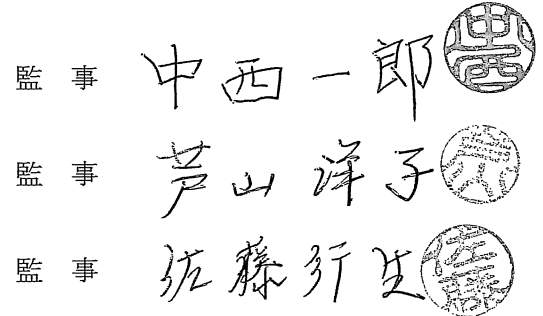 監事 中西一郎 中西
監事 芦山洋子
監事 佐藤行生 佐藤